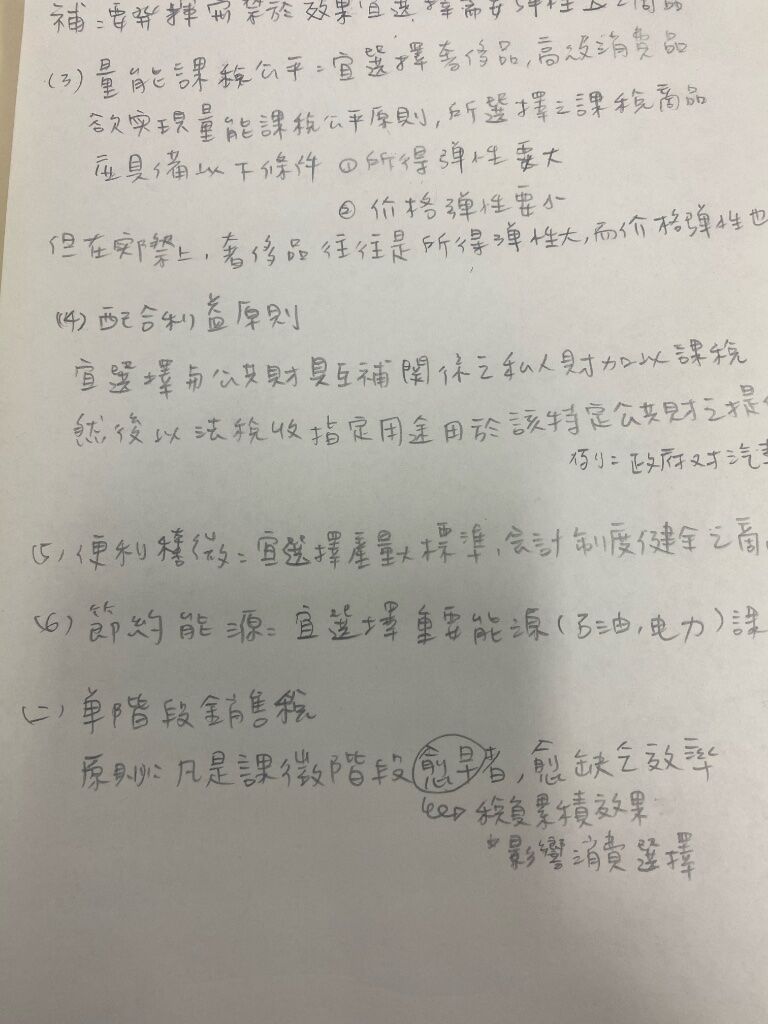 補：要發揮寓禁於效果宜選擇需要彈性大之商品
(3) 量能課稅公平：宜選擇奢侈品,高級消費品
欲實現量能課稅公平原則,所選擇之課稅商品
應具備以下條件 ①所得彈性要大
② 价格彈性要小
但在實際上,奢侈品往往是所得彈性大,而价格彈性也
(4) 配合利益原則
宜選擇與公共財具互補關係之私人財加以課稅
然後以法稅收指定用途用於該特定公共財之提
例：政府对汽車
(5) 便利稽徵：宜選擇產量大,標準,会計制度健全之商
(6) 節約能源：宜選擇重要能源(石油,电力)課
(二) 單階段銷售稅
原則：凡是課徵階段愈早者,愈缺乏效率
稅負累積效果
影響消費選擇